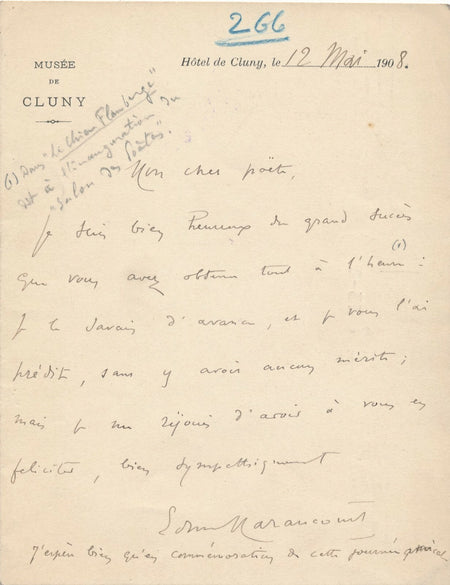 266
MUSÉE
DE
CLUNY
Hôtel de Cluny, le 12 Mai 1908.
(1) Dans "Le Chien Flamberge"
dit à l'inauguration du
"Salon des Poètes".
Mon cher poëte,
Je suis bien heureux du grand succès
que vous avez obtenu tout à l'heure (1) :
je le savais d'avance, et je vous l'ai
prédit, sans y avoir aucun mérite ;
mais je me réjouis d'avoir à vous en
féliciter, bien sympathiquement
Edm Haraucourt
J'espère bien qu'en commémoration de cette journée